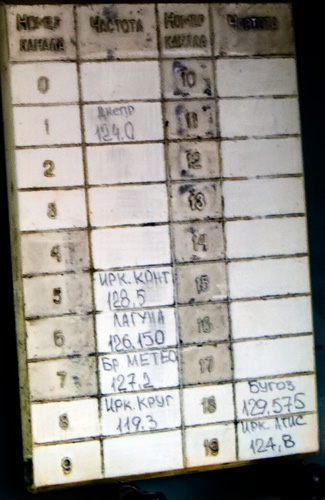 НОМЕР КАНАЛА ЧАСТОТА НОМЕР КАНАЛА ЧАСТОТА
0 10
1 ДНЕПР 124.0 11
2 12
3 13
4 14
5 ИРК. КОНТ 128.5 15
6 ЛАГУНА 126.150 16
7 БР МЕТЕО 127.2 17
8 ИРК. КРУГ 119.3 18 БУГОЗ 129.575
9 19 ИРК. АТИС 124,8